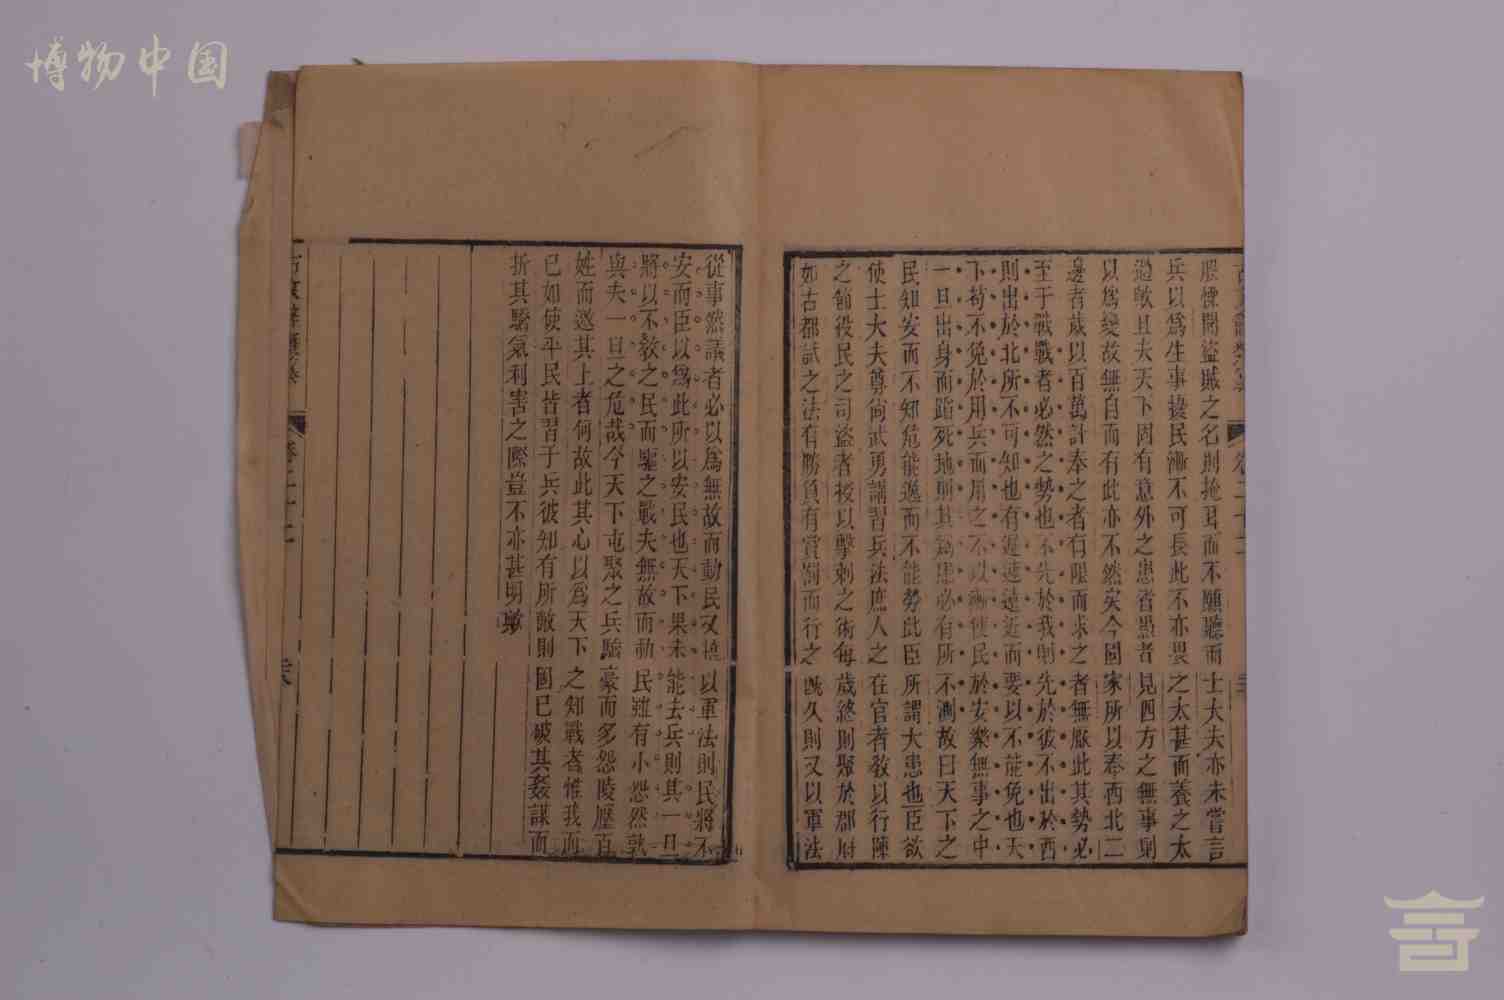 博物中国
古文辭類纂 卷二十二
股慄聞盜賊之名則掩耳而不願聽而士大夫亦未嘗言
兵以爲生事擾民漸不可長此不亦畏之太甚而養之太
過歟且夫天下固有意外之患者愚者見四方之無事則
以爲變故無自而有此亦不然矣今國家所以奉西北二
邊者歲以百萬計奉之者有限而求之者無厭此其勢必
至于戰戰者必然之勢也不先於我則先於彼不出於西
則出於北所不可知也有遲速遠近而要以不能免也天
下苟不免於用兵而用之不以漸使民於安樂無事之中
一旦出身而蹈死地則其爲患必有所不測故曰天下之
民知安而不知危能逸而不能勞此臣所謂大患也臣欲
使士大夫尊尚武勇講習兵法庶人之在官者教以行陣
之節役民之司盜者授以擊刺之術每歲終則聚於郡府
如古都試之法有勝負有賞罰而行之既久則又以軍法
從事然議者必以爲無故而動民又撓以軍法則民將不
安而臣以爲此所以安民也天下果未能去兵則其一旦
將以不教之民而驅之戰夫無故而動民雖有小怨然孰
與夫一旦之危哉今天下屯聚之兵驕豪而多怨陵壓百
姓而邀其上者何故此其心以爲天下之知戰者惟我而
已如使平民皆習于兵彼知有所敵則固已破其姦謀而
折其驕氣利害之際豈不亦甚明歟
古文辭類纂 卷二十二